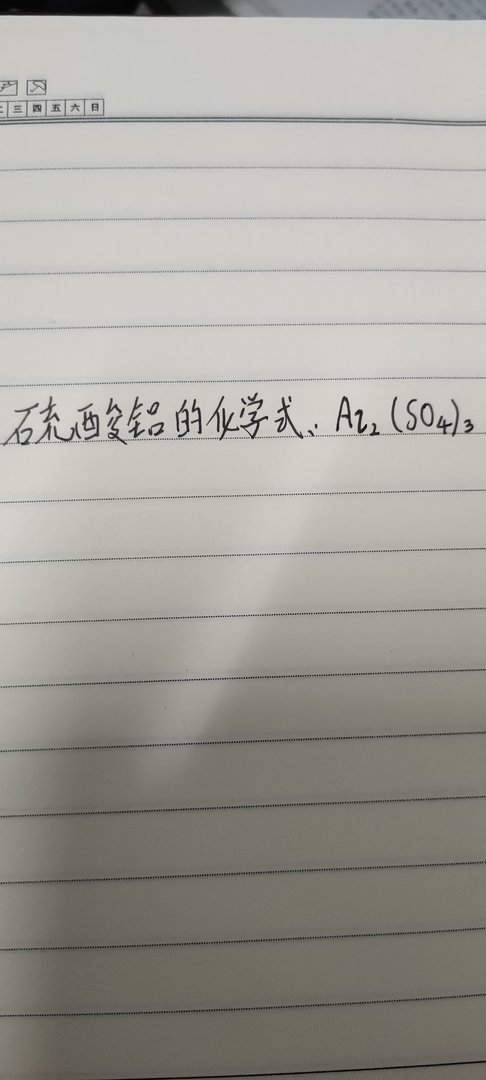 三 四 五 六 日
硫酸铝的化学式: Al₂(SO₄)₃